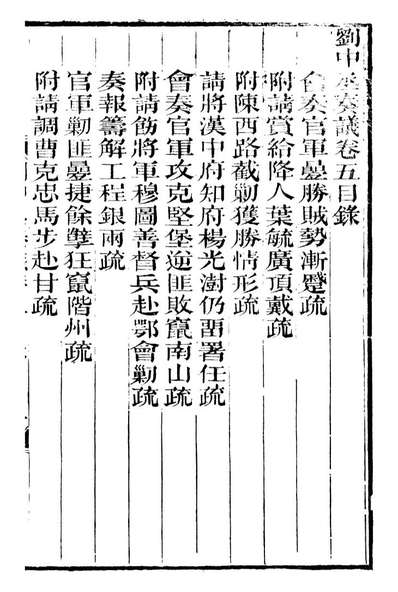 劉中丞奏議卷五目錄
會奏官軍疊勝賊勢漸蹙疏
附請賞給降人葉毓廣頂戴疏
附陳西路截勦獲勝情形疏
請將漢中府知府楊光澍仍畱署任疏
會奏官軍攻克堅堡逆匪敗竄南山疏
附請飭將軍穆圖善督兵赴鄂會勦疏
奏報籌解工程銀兩疏
官軍勦匪疊捷餘孽狂竄階州疏
附請調曹克忠馬步赴甘疏